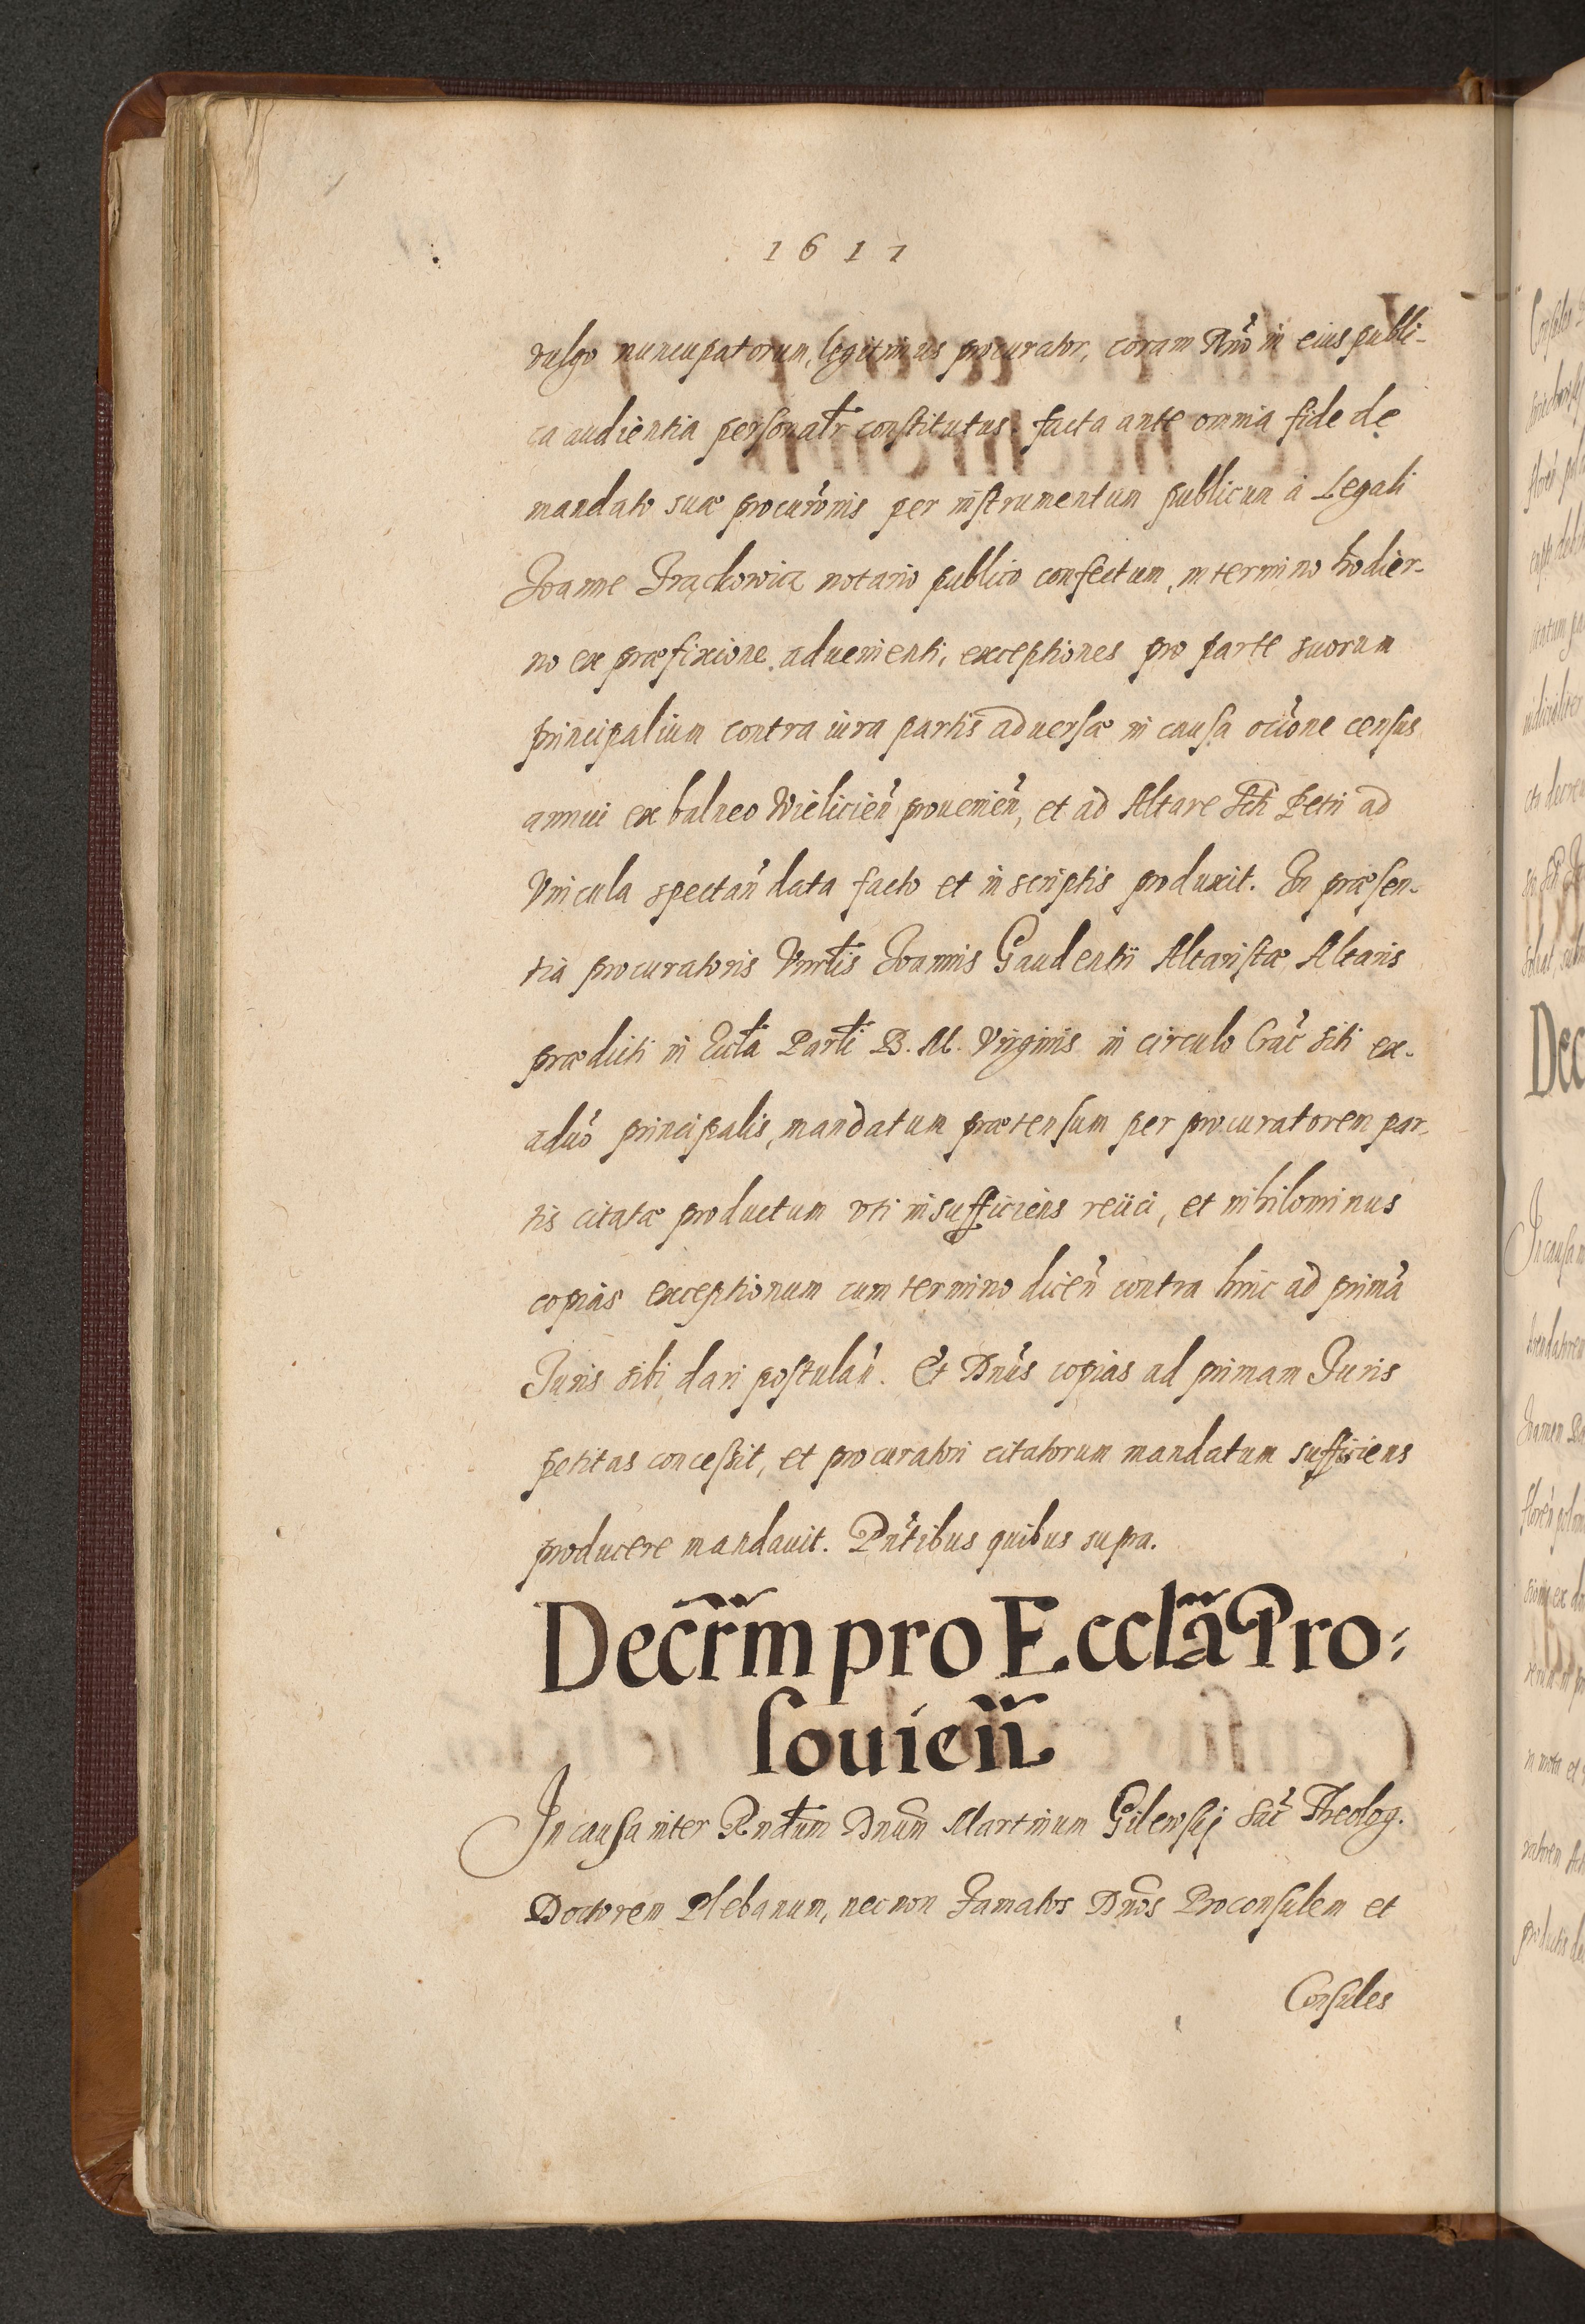 1611
vulgo nuncupatorum, legitimus procurator, coram Dño in eius publi-
ca audientia personałr constitutus. facta ante omnia fide de
mandato suæ procurõnis per instrumentum publicum à Legali
Joanne Frąckowicz notario publico confectum, in termino hodier-
no ex præfixione adueniendi, exceptiones pro parte suorum
principalium contra iura partis aduersæ in causa occõne census
annui ex balneo Wielicień prouenień, et ad Altare Scti Petri ad
Vincula spectań data facto et in scriptis produxit. In præsen-
tia procuratoris Vnrlis Joannis Gaudentii Altaristæ Altaris
prædicti in Eccła Parłi B. M. Virginis in circulo Crac̃ siti ex-
aduõ principalis, mandatum prætensum per procuratorem par-
tis citatæ productum vti insufficiens reiici, et nihilominus
copias exceptionum cum termino diceñ contra hinc ad primã
Juris sibi dari postulañ. Et Dñus copias ad primam Juris
petitas concessit, et procuratori citatorum mandatum sufficiens
producere mandauit. Pñtibus quibus supra.
Decr̃m pro Eccl̃a Pro-
souień
In causa inter Rndum Dnum Martinum Gilewskj Sac̃ Theolog.
Doctorem Plebanum, necnon Famatos Dños Proconsulem et
Consules